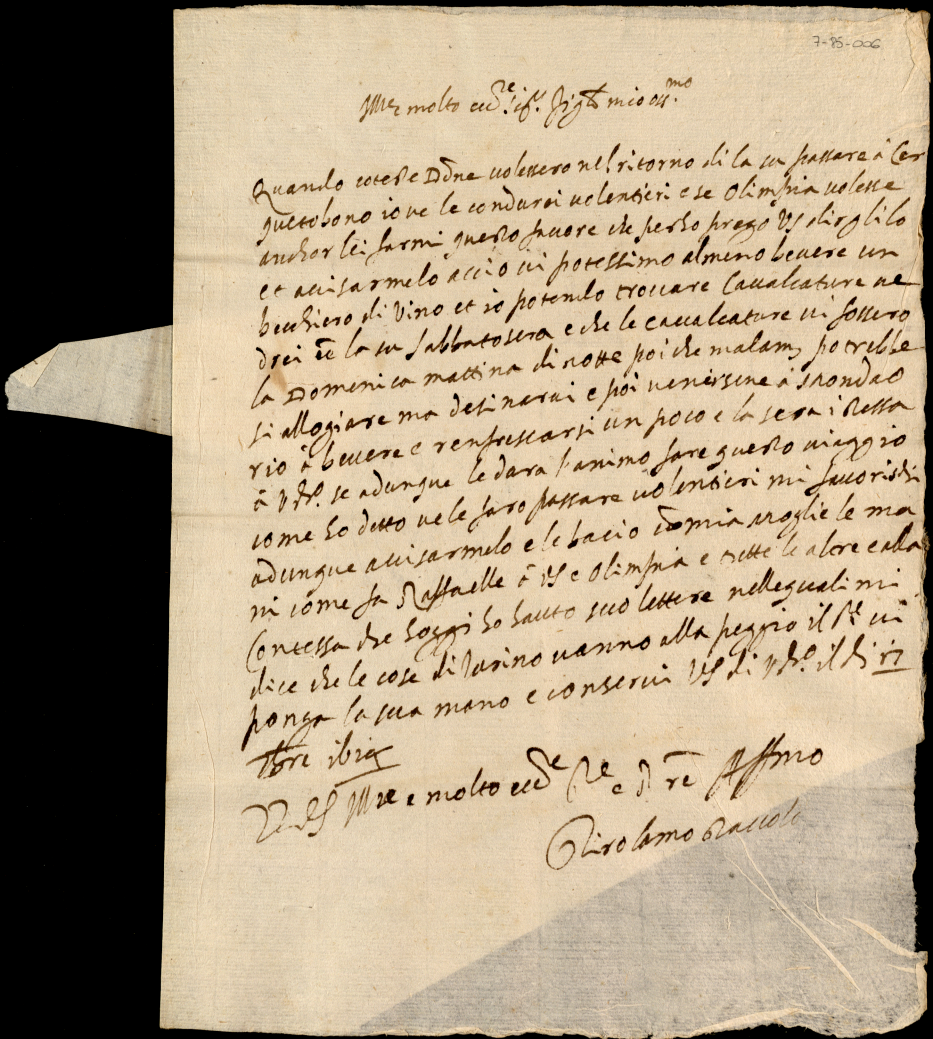 7-85-006
Ill.re molto ecc.re sig.r Sig.r mio oss.mo
Quando coteste Done volessero nel ritorno di la su passare à Cer
quetobono io ve le condurei volentieri e se Olimpia volesse
anchor lei farmi questo favore che perho prego VS dirglilo
et avisarmelo accio vi potessimo almeno bevere un
bechiero di Vino et io potendo trovare Cavalcature ve
drei la su Sabbatosera e che le cavalcature vi fossero
la Domenica mattina di notte poi che malam potrebbe
si allogiare ma desinarvi e poi venirsene à
rio à bevere e renfrescarsi un poco e la sera istessa
à se adunque le dara l'animo fare questo viaggio
come ho detto vele faro passare volentieri mi favorischi
adunque avisarmelo e le bacio mia moglie le ma
ni come fa Raffaelle à VS e Olimpia e tutte le altre e alla
Contessa che hoggi ho hauto suo lettere nelle quali mi
dice che le cose di Turino vanno alla peggio il Sr. vi
ponga la sua mano e conservi VS di il di
Di VS Ill.re e molto ecc.te Aff.mo
Girolamo